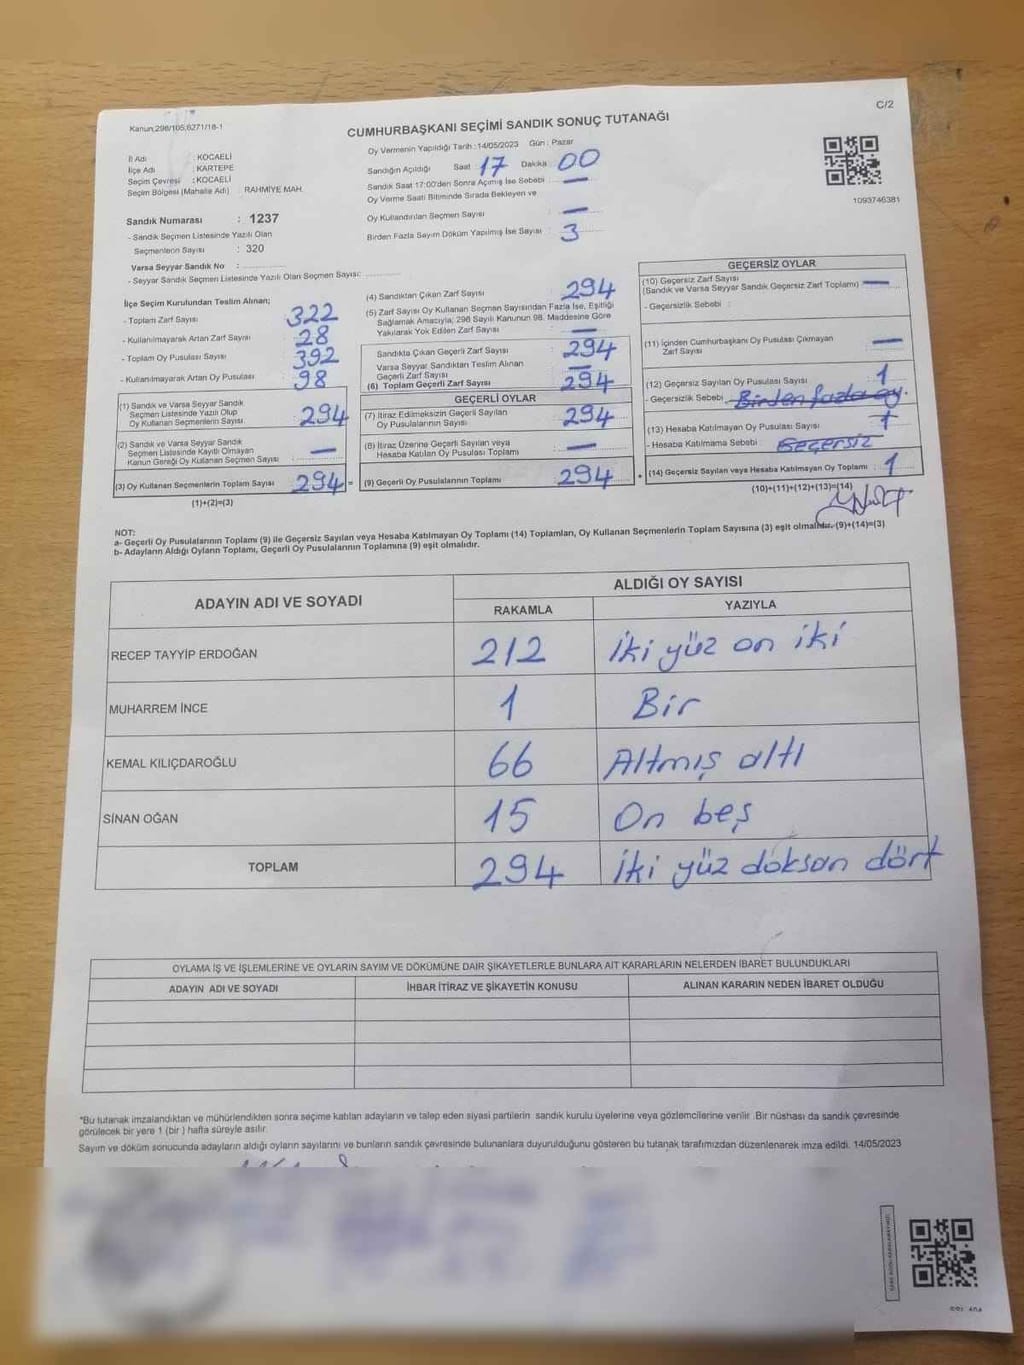 C/2
Kanun;298/105,6271/18-1
CUMHURBAŞKANI SEÇİMİ SANDIK SONUÇ TUTANAĞI
İl Adı : KOCAELİ
İlçe Adı : KARTEPE
Seçim Çevresi : KOCAELİ
Seçim Bölgesi (Mahalle Adı) : RAHMİYE MAH.
Sandık Numarası : 1237
- Sandık Seçmen Listesinde Yazılı Olan
Seçmenlerin Sayısı : 320
Varsa Seyyar Sandık No :
- Seyyar Sandık Seçmen Listesinde Yazılı Olan Seçmen Sayısı:
Oy Vermenin Yapıldığı Tarih :14/05/2023 Gün : Pazar
Sandığın Açıldığı Saat 17 Dakika 00
Sandık Saat 17:00'den Sonra Açımış İse Sebebi : —
Oy Verme Saati Bitiminde Sırada Bekleyen ve
Oy Kullandırılan Seçmen Sayısı : —
Birden Fazla Sayım Döküm Yapılmış İse Sayısı : 3
1093746381
İlçe Seçim Kurulundan Teslim Alınan;
- Toplam Zarf Sayısı : 322
- Kullanılmayarak Artan Zarf Sayısı : 28
- Toplam Oy Pusulası Sayısı : 392
- Kullanılmayarak Artan Oy Pusulası : 98
(1) Sandık ve Varsa Seyyar Sandık
Seçmen Listesinde Yazılı Olup
Oy Kullanan Seçmenlerin Sayısı : 294
(2) Sandık ve Varsa Seyyar Sandık
Seçmen Listesinde Kayıtlı Olmayan
Kanun Gereği Oy Kullanan Seçmen Sayısı : —
(3) Oy Kullanan Seçmenlerin Toplam Sayısı : 294 =
(1)+(2)=(3)
(4) Sandıktan Çıkan Zarf Sayısı : 294
(5) Zarf Sayısı Oy Kullanan Seçmen Sayısından Fazla İse, Eşitliği
Sağlamak Amacıyla; 298 Sayılı Kanunun 98. Maddesine Göre
Yakılarak Yok Edilen Zarf Sayısı : —
Sandıkta Çıkan Geçerli Zarf Sayısı : 294
Varsa Seyyar Sandıktan Teslim Alınan
Geçerli Zarf Sayısı : —
(6) Toplam Geçerli Zarf Sayısı : 294
GEÇERLİ OYLAR
(7) İtiraz Edilmeksizin Geçerli Sayılan
Oy Pusulalarının Sayısı : 294
(8) İtiraz Üzerine Geçerli Sayılan veya
Hesaba Katılan Oy Pusulası Toplamı : —
(9) Geçerli Oy Pusulalarının Toplamı : 294 +
GEÇERSİZ OYLAR
(10) Geçersiz Zarf Sayısı
(Sandık ve Varsa Seyyar Sandık Geçersiz Zarf Toplamı) : —
- Geçersizlik Sebebi :
(11) İçinden Cumhurbaşkanı Oy Pusulası Çıkmayan
Zarf Sayısı : —
(12) Geçersiz Sayılan Oy Pusulası Sayısı : 1
- Geçersizlik Sebebi : Birden fazla oy.
(13) Hesaba Katılmayan Oy Pusulası Sayısı : 1
- Hesaba Katılmama Sebebi : Geçersiz
(14) Geçersiz Sayılan veya Hesaba Katılmayan Oy Toplamı : 1
(10)+(11)+(12)+(13)=(14)
NOT:
a- Geçerli Oy Pusulalarının Toplamı (9) ile Geçersiz Sayılan veya Hesaba Katılmayan Oy Toplamı (14) Toplamları, Oy Kullanan Seçmenlerin Toplam Sayısına (3) eşit olmalıdır. (9)+(14)=(3)
b- Adayların Aldığı Oyların Toplamı, Geçerli Oy Pusulalarının Toplamına (9) eşit olmalıdır.
ADAYIN ADI VE SOYADI
ALDIĞI OY SAYISI
RAKAMLA YAZIYLA
RECEP TAYYİP ERDOĞAN 212 İki yüz on iki
MUHARREM İNCE 1 Bir
KEMAL KILIÇDAROĞLU 66 Altmış altı
SİNAN OĞAN 15 On beş
TOPLAM 294 İki yüz doksan dört
OYLAMA İŞ VE İŞLEMLERİNE VE OYLARIN SAYIM VE DÖKÜMÜNE DAİR ŞİKAYETLERLE BUNLARA AİT KARARLARIN NELERDEN İBARET BULUNDUKLARI
ADAYIN ADI VE SOYADI İHBAR İTİRAZ VE ŞİKAYETİN KONUSU ALINAN KARARIN NEDEN İBARET OLDUĞU
*Bu tutanak imzalandıktan ve mühürlendikten sonra seçime katılan adayların ve talep eden siyasi partilerin sandık kurulu üyelerine veya gözlemcilerine verilir .Bir nüshası da sandık çevresinde
görülecek bir yere 1 (bir ) hafta süreyle asılır.
Sayım ve döküm sonucunda adayların aldığı oyların sayılarını ve bunların sandık çevresinde bulunanlara duyurulduğunu gösteren bu tutanak tarafımızdan düzenlenerek imza edildi. 14/05/2023